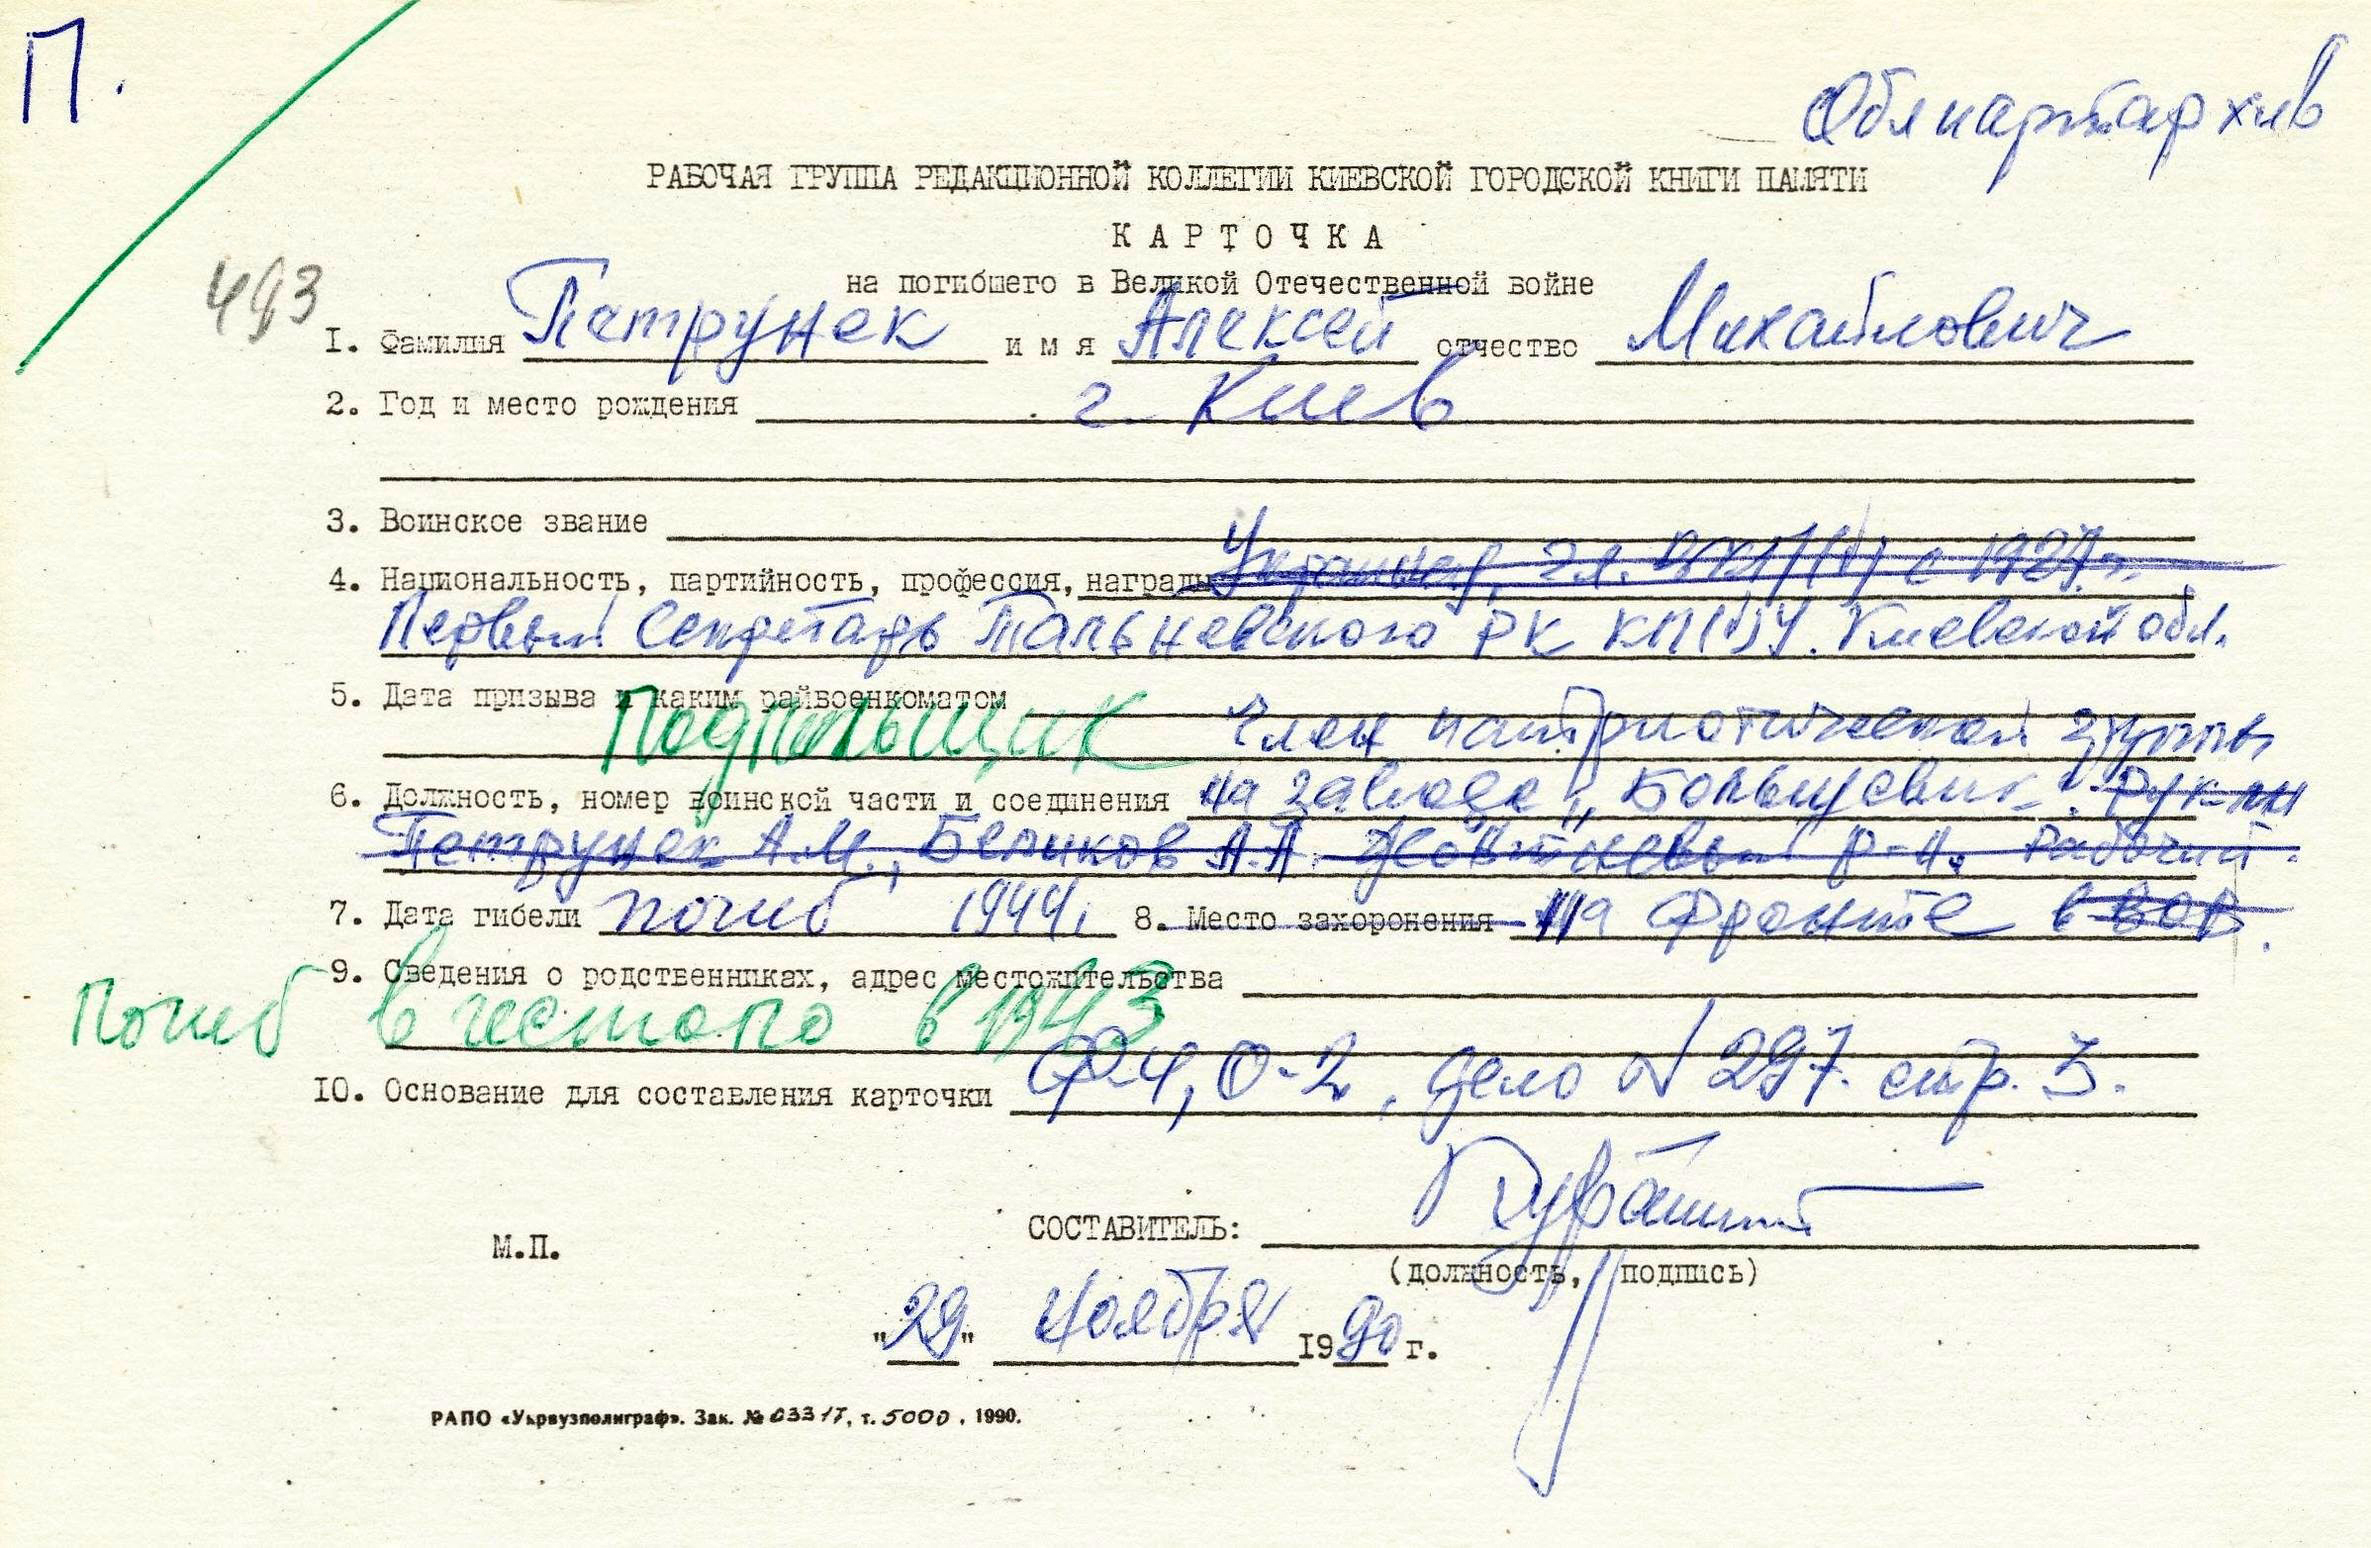 П.
Облпартархив
РАБОЧАЯ ГРУППА РЕДАКЦИОННОЙ КОЛЛЕГИИ КИЕВСКОЙ ГОРОДСКОЙ КНИГИ ПАМЯТИ
КАРТОЧКА
на погибшего в Великой Отечественной войне
493
1. Фамилия Петрунек имя Алексей отчество Михайлович
2. Год и место рождения г. Киев
3. Воинское звание
4. Национальность, партийность, профессия, награды Украинец, чл. ВКП(б) с 1927 г.
Первый секретарь Тальновского РК КП(б)У. Киевской обл.
5. Дата призыва и каким райвоенкоматом
Подпольщик Член патриотической группы
6. Должность, номер воинской части и соединения на заводе "Большевик". Рук-ли
Петрунек А.М., Беликов А.А. Жовтневый р-н. Рабочий.
7. Дата гибели погиб 1944, 8. Место захоронения На фронте в ВОВ.
9. Сведения о родственниках, адрес местожительства
Погиб в гестапо в 1943
10. Основание для составления карточки Ф-4, О-2, дело № 297. стр. 3.
СОСТАВИТЕЛЬ:
М.П.
(должность, подпись)
"29" ноября 1990 г.
РАПО «Укрвузполиграф». Зак. № 03317, т. 5000, 1990.